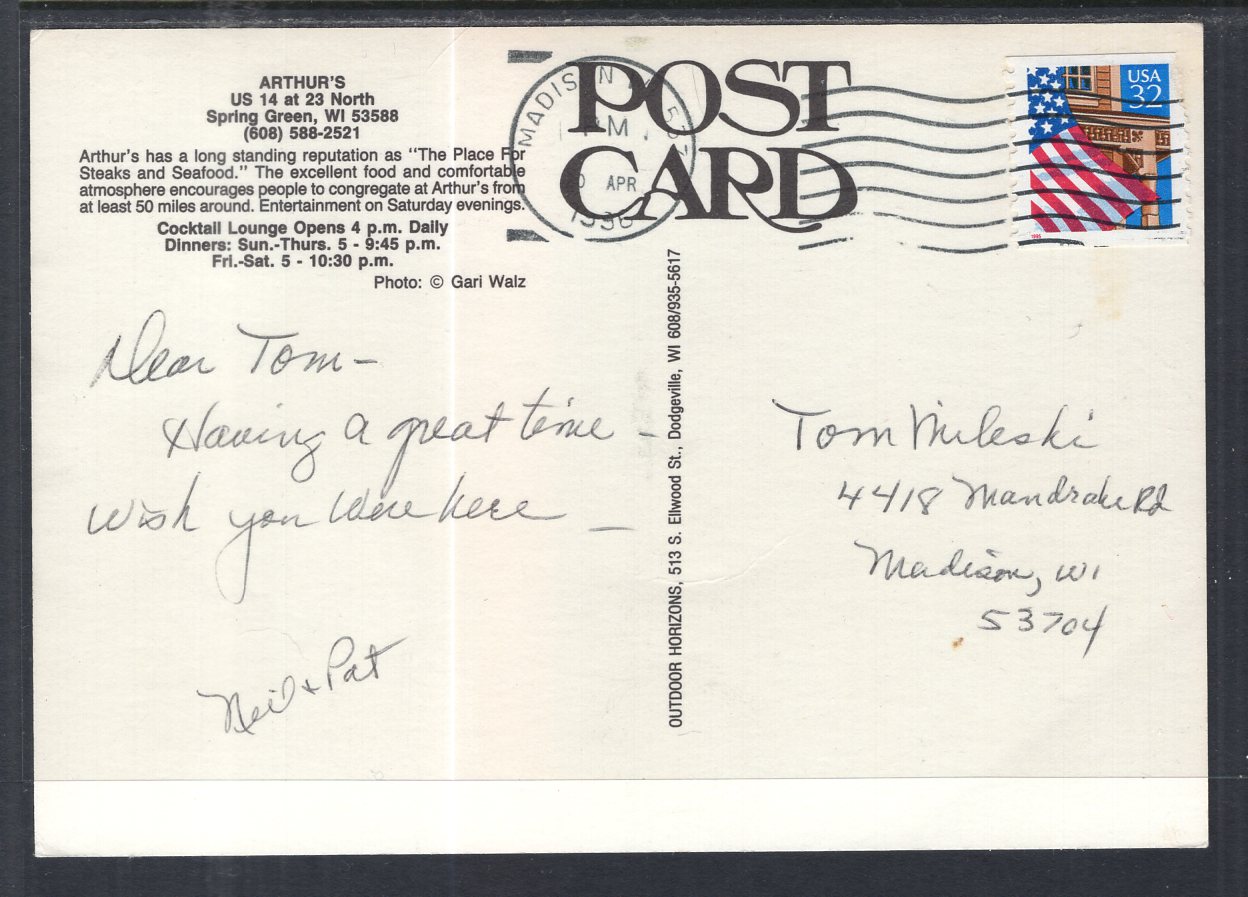 ARTHUR'S
US 14 at 23 North
Spring Green, WI 53588
(608) 588-2521
Arthur's has a long standing reputation as "The Place For
Steaks and Seafood." The excellent food and comfortable
atmosphere encourages people to congregate at Arthur's from
at least 50 miles around. Entertainment on Saturday evenings.
Cocktail Lounge Opens 4 p.m. Daily
Dinners: Sun.-Thurs. 5 - 9:45 p.m.
Fri.-Sat. 5 - 10:30 p.m.
Photo: © Gari Walz
POST
CARD
MADISON
PM
APR
USA
32
1995
Dear Tom-
Having a great time -
Wish you were here -
Neil + Pat
OUTDOOR HORIZONS, 513 S. Ellwood St., Dodgeville, WI 608/935-5617
Tom Mileski
4418 Mandrake Rd
Madison, WI
53704